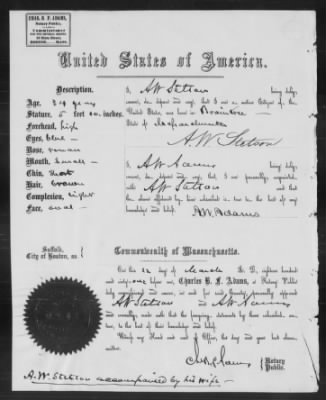 CHAS. B. F. ADAMS,
Notary Public,
Commissioner
United States of America.
Description.
Age, 34 years
Stature, 5 feet inches.
Forehead, high
Eyes, blue
Nose, roman
Mouth, small
Chin, short
Hair, brown
Complexion, light
Face, oval
I, A W Stetson being duly
sworn, do depose and say, that I am a native Citizen of the
United States, and born in Braintree
State of Massachusetts
A. W. Stetson
I, A W Adams being duly
sworn, do depose and say, that I am personally acquainted
with A W Stetson and that
the above affidavit by him subscribed is true to the best of my
knowledge and belief. A W Adams
Suffolk,
City of Boston, ss.
Commonwealth of Massachusetts.
On this 12 day of March A. D., eighteen hundred
and sixty one before me, Charles B. F. Adams, a Notary Public
duly commissioned and sworn, personally appeared
A W Stetson and A W Adams
and severally made oath that the foregoing statements by them subscribed
are true, to the best of their knowledge and belief.
Witness my Hand and seal of Office, the day and year last above
written.
Notary
Public.
A. W. Stetson accompanied by his wife